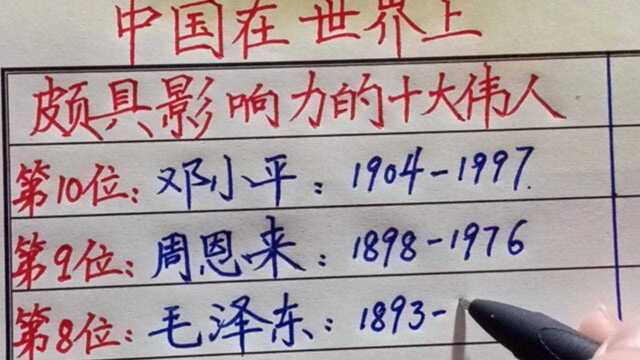 中国在世界上
颇具影响力的十大伟人
第10位：邓小平：1904-1997.
第9位：周恩来：1898-1976
第8位：毛泽东：1893-